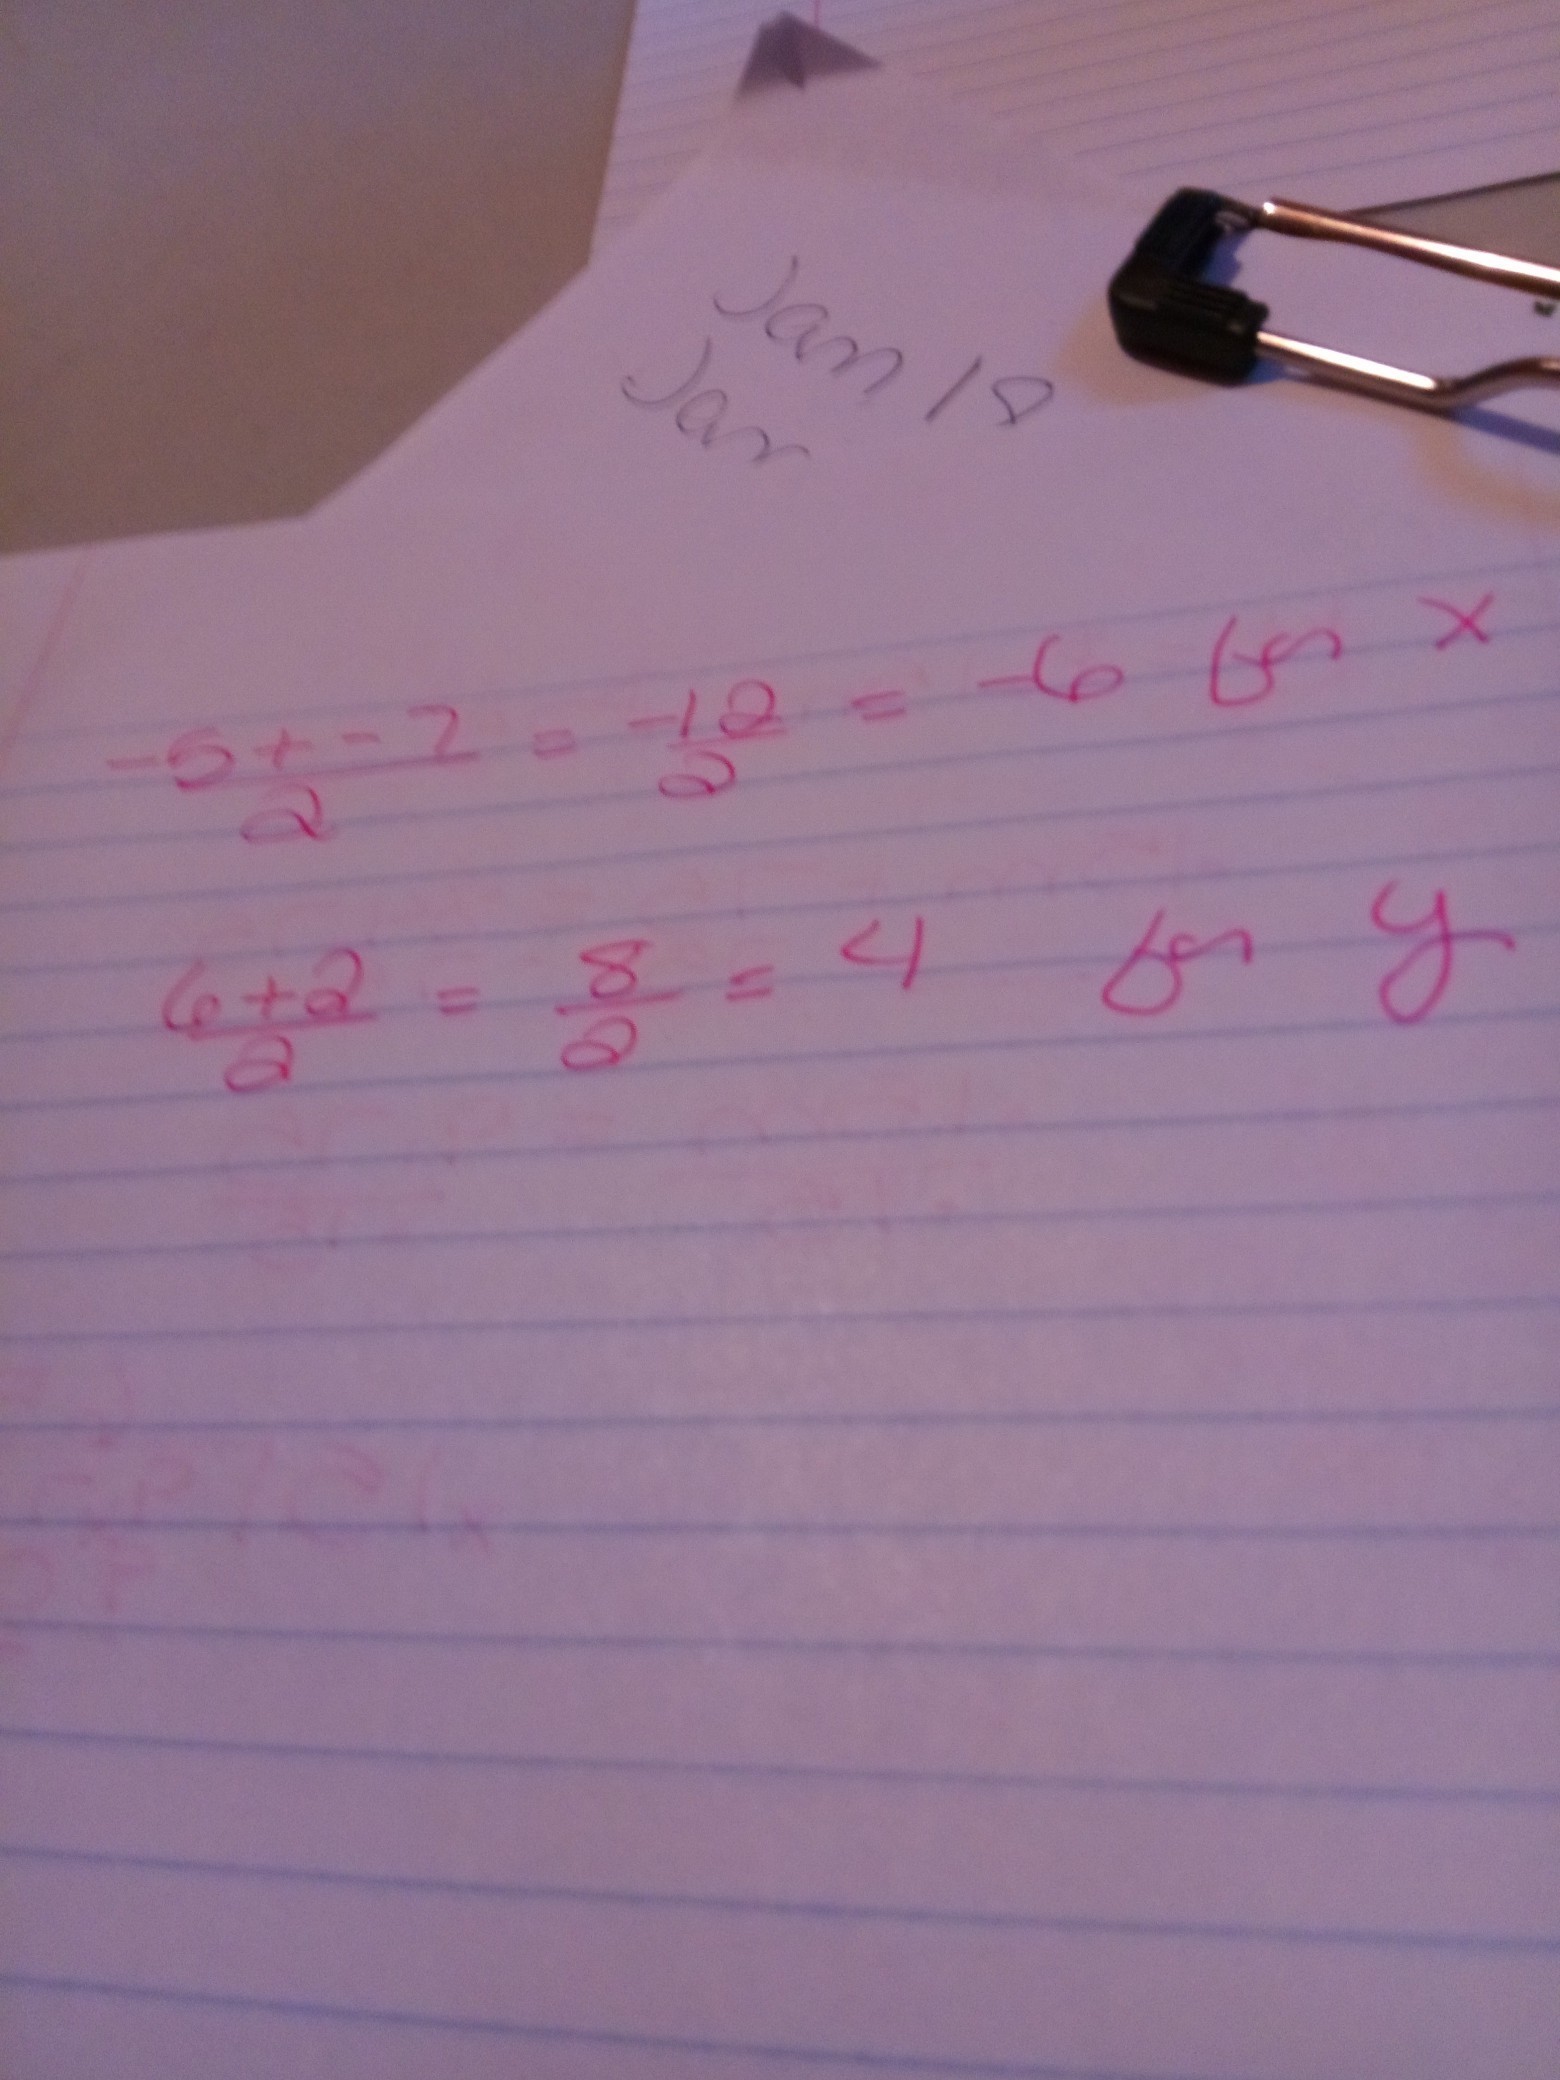 Jan 18
Jan
-5+-7/2 = -12/2 = -6 for x
6+2/2 = 8/2 = 4 for y